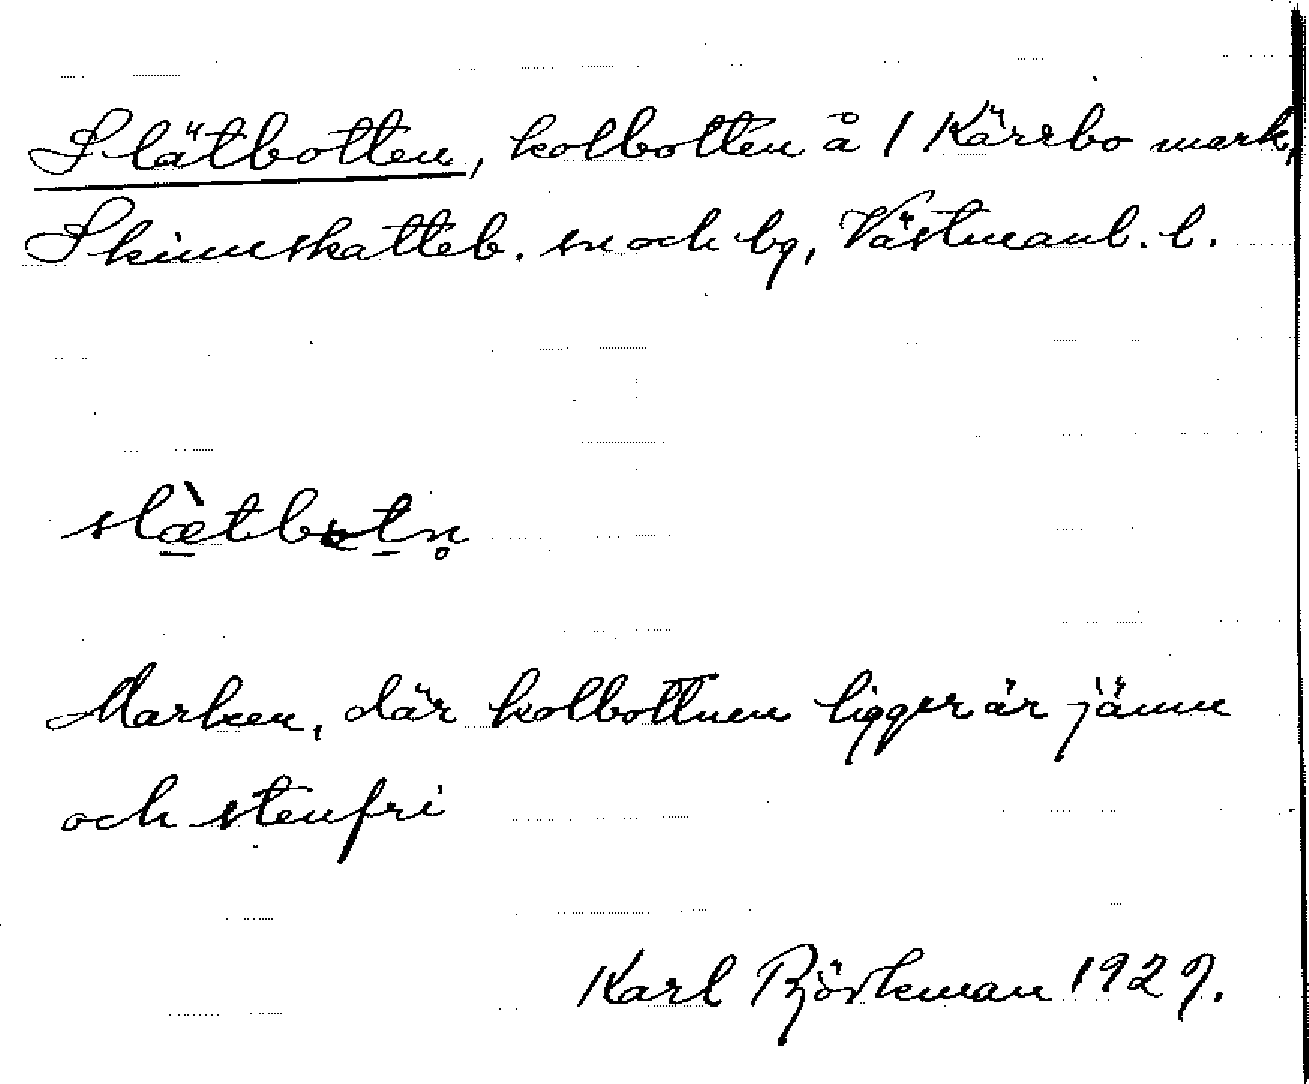 Slätbotten, kolbotten å / Kärrbo mark,
Skinnskatteb. sn och bg, Västmanl. l.
slæ̀tbɷtn̥
Marken, där kolbottnen ligger är jämn
och stenfri
Karl Björkman 1929.